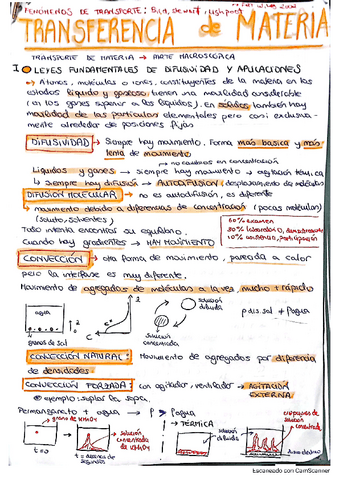 FENÓMENOS DE TRANSPORTE: Bird, Stewart, Lightfoot
TRANSFERENCIA de MATERIA
TRANSPORTE DE MATERIA → PARTE MACROSCÓPICA
I LEYES FUNDAMENTALES DE DIFUSIVIDAD Y APLICACIONES
→ Átomos, moléculas o iones, constituyentes de la materia en los
estados líquido y gaseoso tienen una movilidad considerable
(en los gases superior a los líquidos). En sólidos también hay
movilidad de las partículas elementales pero casi exclusiva-
mente alrededor de posiciones fijas
DIFUSIVIDAD → Siempre hay movimiento. Forma más básica y más
lenta de movimiento
↳ no cambios en concentración
Líquidos y gases → siempre hay movimiento → agitación térmica
↳ siempre hay difusión → AUTODIFUSIÓN, desplazamiento de moléculas
DIFUSIÓN MOLECULAR → no es autodifusión, es diferente
↳ movimiento debido a diferencias de concentración (pocas moléculas)
(soluto, solventes)
Todo intenta encontrar su equilibrio.
Cuando hay gradientes → HAY MOVIMIENTO
60% examen
30% laboratorio,
10% participación
CONVECCIÓN → otra forma de movimiento, parecida a calor
pero la interfase es muy diferente.
Movimiento de agregados de moléculas a la vez mucho + rápido
agua
grano de sal
z
C
z
solución
diluida
solución
concentrada
ρ dis. sal > ρ agua
CONVECCIÓN NATURAL: Movimiento de agregados por diferencia
de densidades.
CONVECCIÓN FORZADA: con agitador, ventilador → AGITACIÓN
EXTERNA
ejemplo: soplar la sopa.
Permanganato + agua → ρ > ρ agua
grano de KMnO4
t=0
solución
concentrada
de KMnO4
t = decenas de
segundos
→ TÉRMICA
solución
diluida
solución
concentrada
Escaneado con CamScanner